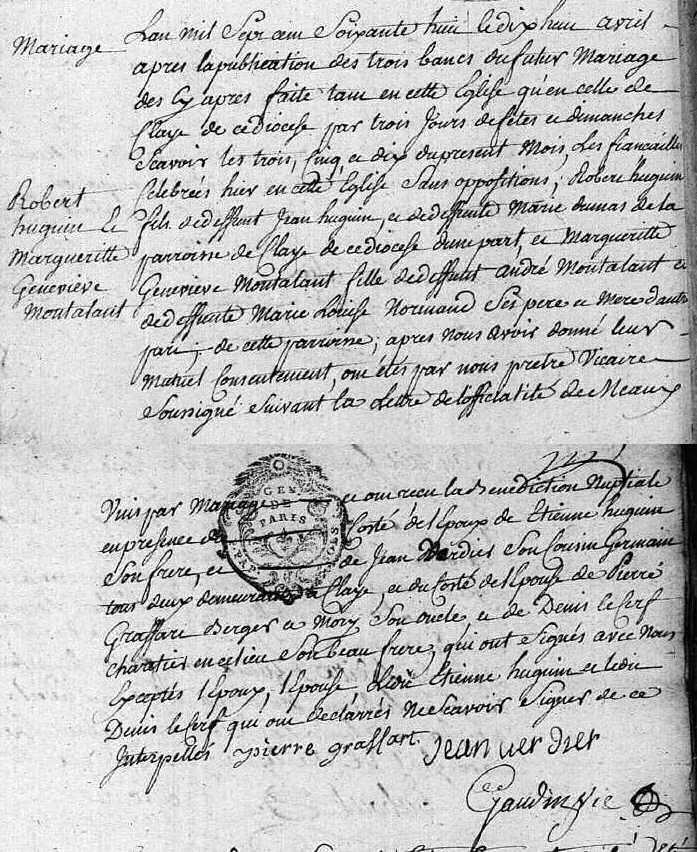 Mariage
Robert
huguin et
Margueritte
Geneviève
Montalant
Lan mil Sept cent Soixante huit le dix huit avril
apres la publication des trois bancs du futur Mariage
des Cy apres faite tant en cette Eglise qu'en celle de
Claye de ce diocese par trois Jours de fêtes et dimanches
Scavoir les trois, Cinq et dix du present Mois, Les fiancailles
Celebrées hier en cette Eglise Sans oppositions; Robert huguin
fils de deffunt Jean huguin, et de deffunte Marie dumas de la
parroisse de Claye de ce diocese dune part, et Margueritte
Geneviève Montalant fille de deffunt andré Montalant et
de deffunte Marie Louise Normand Ses pere et Mere d'autre
part, de cette parroisse; apres nous avoir donné leur
Mutuel Consentement, ont étés par nous pretre Vicaire
Soussigné Suivant la Lettre de l'officialité de Meaux
Unis par Mariage et ont recu la Benediction Nuptiale
en presence du Costé de l'Epoux de Etienne huguin
Son frere, et de Jean Verdier Son Cousin Germain
tous deux demeurants a Claye, et du Costé de l'Epouse de Pierre
Graffart Berger a Mory Son oncle, et de Denis le Cerf
charetier en ce lieu Son beau frere, qui ont Signés avec Nous
Exceptés l'Epoux, l'Epouse Ledit Etienne huguin et ledit
Denis le Cerf qui ont declarrés Ne Scavoir Signer de ce
Interpellés pierre graffart Jean verdier
Gaudin vic
GEN
DE
PARIS